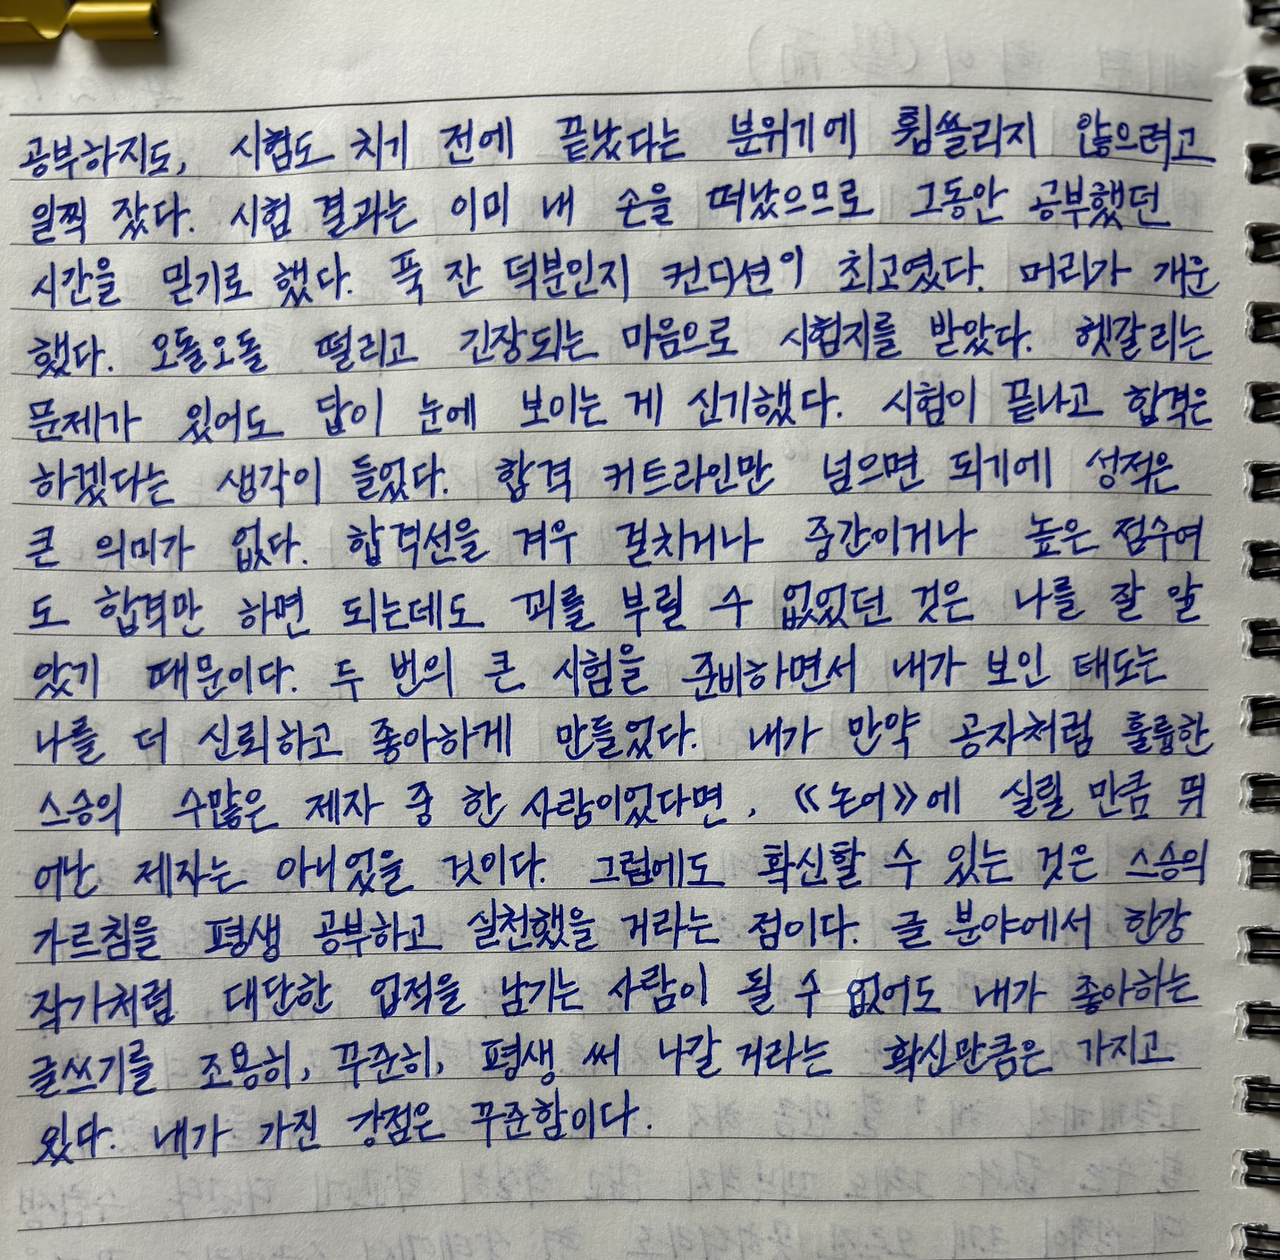 공부하지도, 시험도 치기 전에 끝났다는 분위기에 휩쓸리지 않으려고
일찍 잤다. 시험 결과는 이미 내 손을 떠났으므로 그동안 공부했던
시간을 믿기로 했다. 푹 잔 덕분인지 컨디션이 최고였다. 머리가 개운
했다. 오돌오돌 떨리고 긴장되는 마음으로 시험지를 받았다. 헷갈리는
문제가 있어도 답이 눈에 보이는 게 신기했다. 시험이 끝나고 합격은
하겠다는 생각이 들었다. 합격 커트라인만 넘으면 되기에 성적은
큰 의미가 없다. 합격선을 겨우 걸치거나 중간이거나 높은 점수여
도 합격만 하면 되는데도 꾀를 부릴 수 없었던 것은 나를 잘 알
았기 때문이다. 두 번의 큰 시험을 준비하면서 내가 보인 태도는
나를 더 신뢰하고 좋아하게 만들었다. 내가 만약 공자처럼 훌륭한
스승의 수많은 제자 중 한 사람이었다면, 《논어》에 실릴 만큼 뛰
어난 제자는 아니었을 것이다. 그럼에도 확신할 수 있는 것은 스승의
가르침을 평생 공부하고 실천했을 거라는 점이다. 글 분야에서 한강
작가처럼 대단한 업적을 남기는 사람이 될 수 없어도 내가 좋아하는
글쓰기를 조용히, 꾸준히, 평생 써 나갈 거라는 확신만큼은 가지고
있다. 내가 가진 강점은 꾸준함이다.